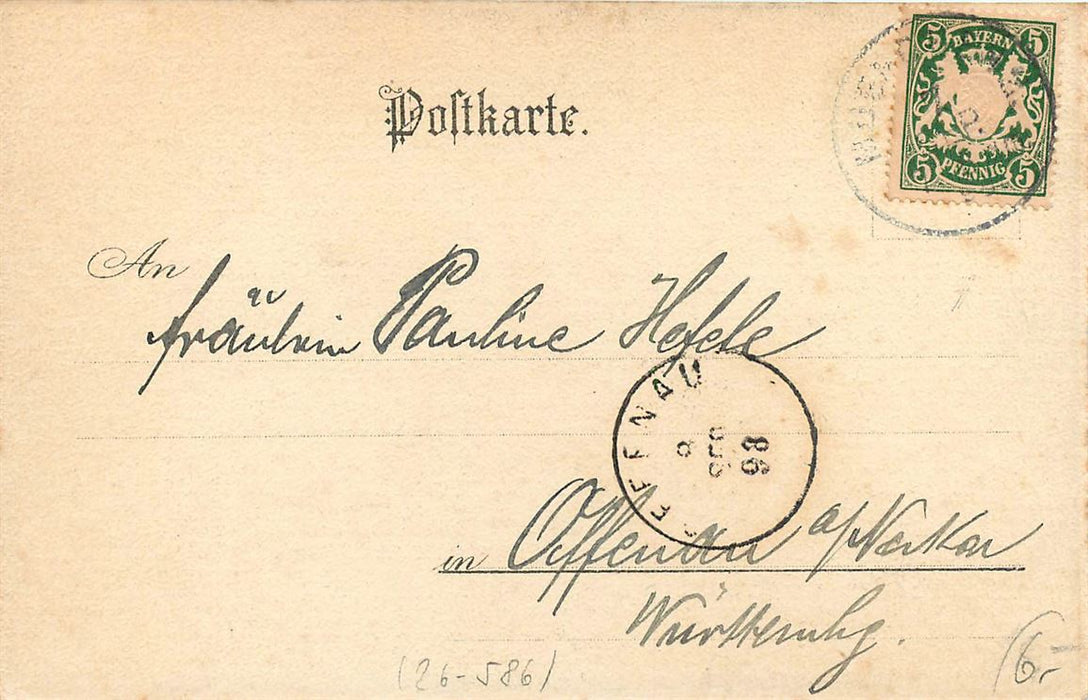 Postkarte.
5 BAYERN 5
5 PFENNIG 5
An
Fräulein Pauline Hefele
98
8
FFENAU
in Offenau a/Neckar
Württembg.
(26-586)
6.-